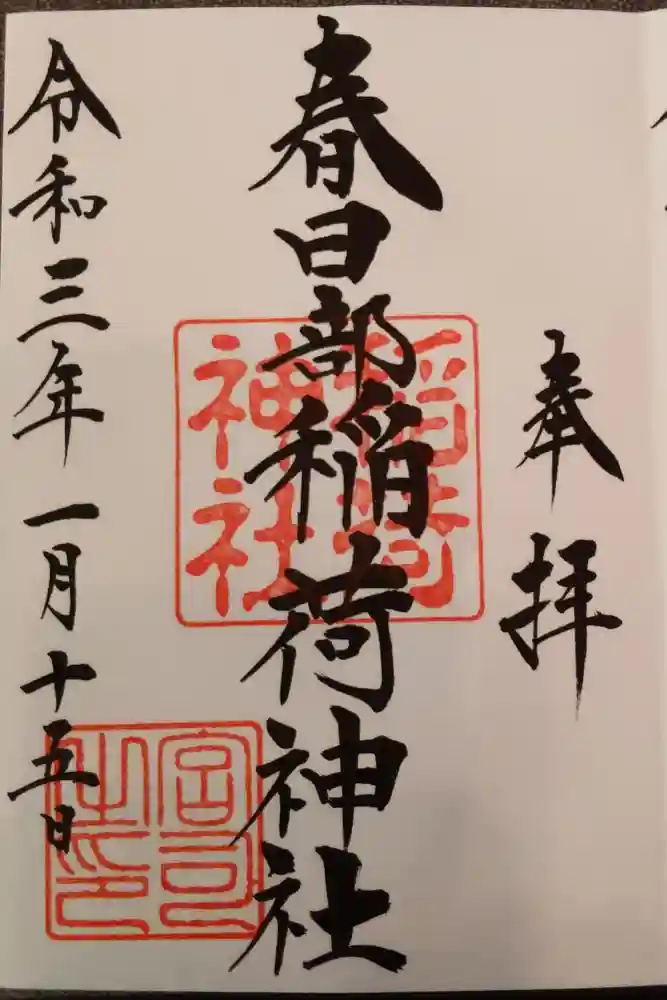 奉拝
春日部稲荷神社
稲荷神社
宮司之印
令和三年一月十五日